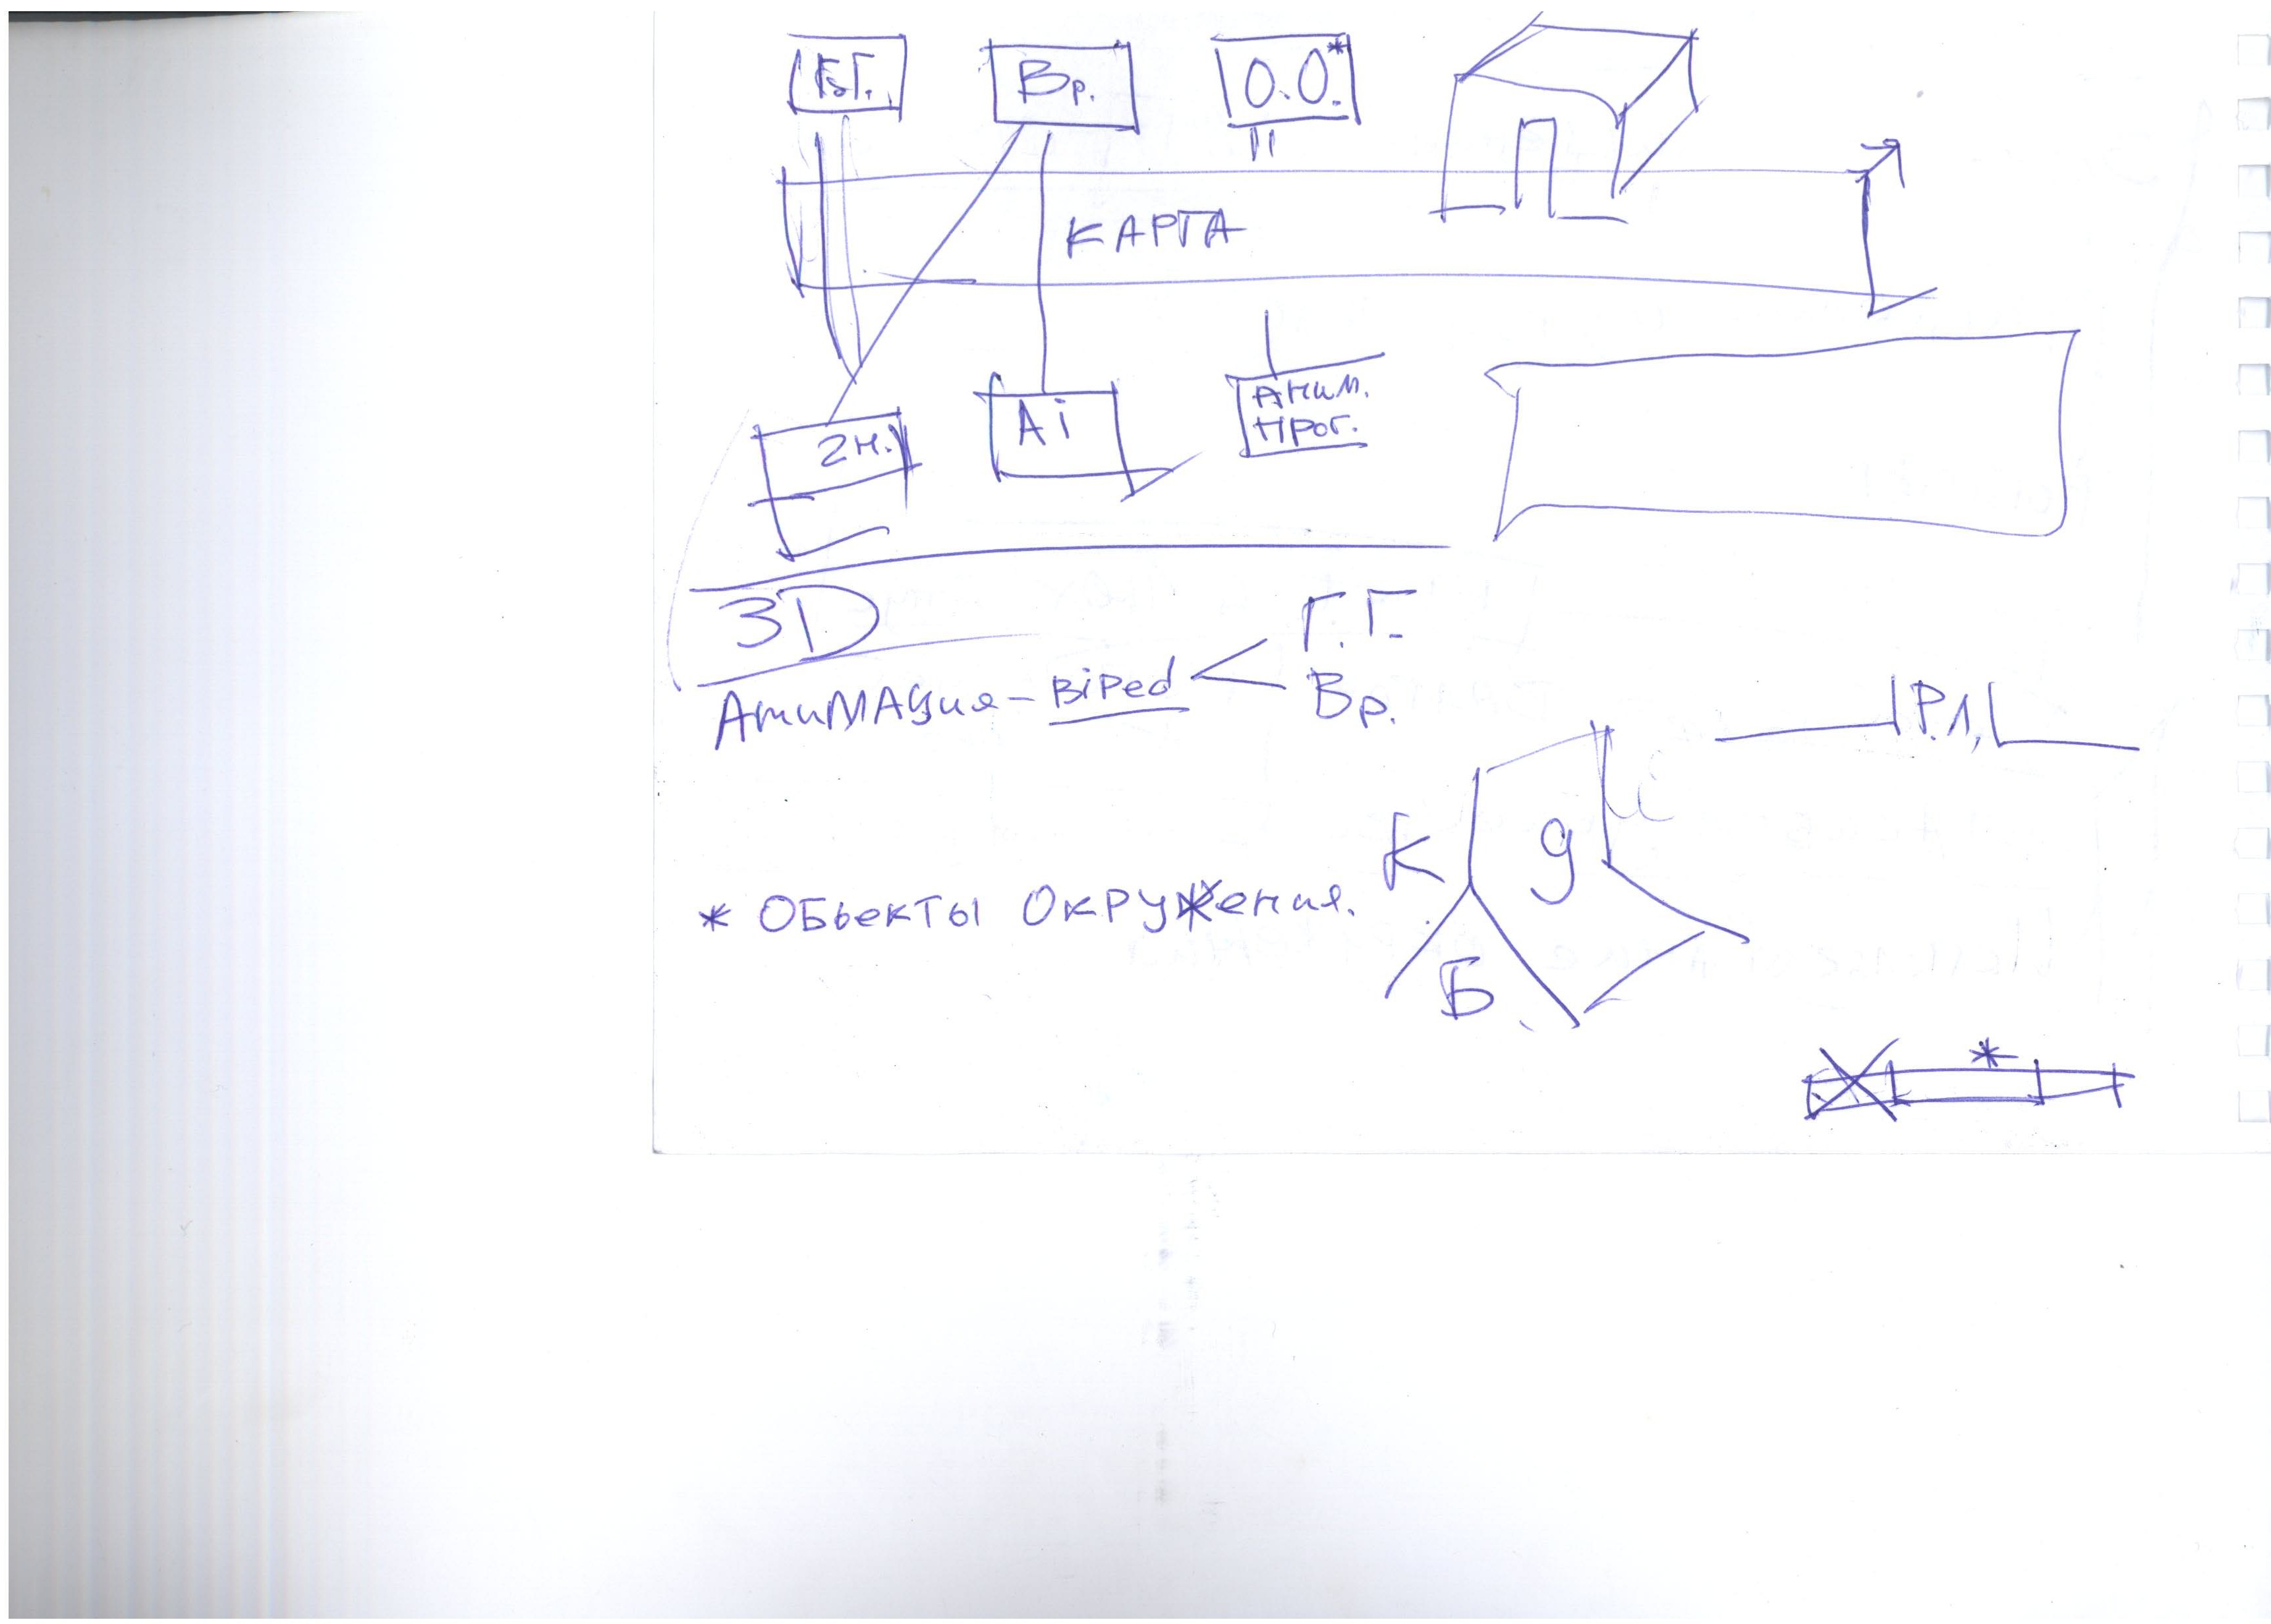 Вр.
О.О.*
КАРТА
2н.
Ai
Аним.
прог.
3D
Г.Г.
Анимация - Biped
Вр.
Р.Л.
К
g
Б
* Обьекты Окружения.
*